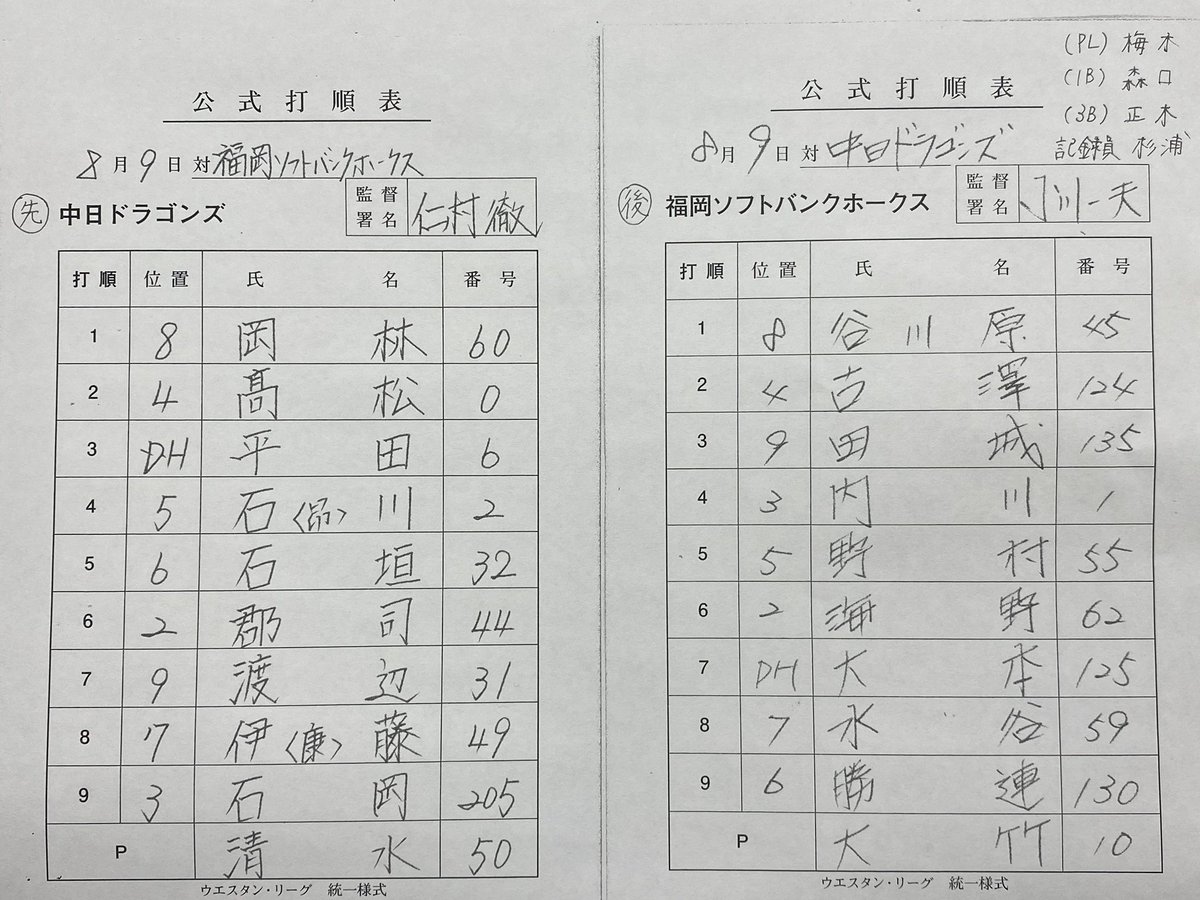 公式打順表
8月9日 対 福岡ソフトバンクホークス
先 中日ドラゴンズ 監督署名 仁村徹
打順 位置 氏名 番号
1 8 岡林 60
2 4 髙松 0
3 DH 平田 6
4 5 石〈昂〉川 2
5 6 石垣 32
6 2 郡司 44
7 9 渡辺 31
8 7 伊〈康〉藤 49
9 3 石岡 205
P 清水 50
ウエスタン・リーグ 統一様式
(PL) 梅木
(1B) 森口
(3B) 正木
記録員 杉浦
公式打順表
8月9日 対 中日ドラゴンズ
後 福岡ソフトバンクホークス 監督署名 川一夫
打順 位置 氏名 番号
1 8 谷川原 45
2 4 古澤 124
3 9 田城 135
4 3 内川 1
5 5 野村 55
6 2 海野 62
7 DH 大本 125
8 7 水谷 59
9 6 勝連 130
P 大竹 10
ウエスタン・リーグ 統一様式